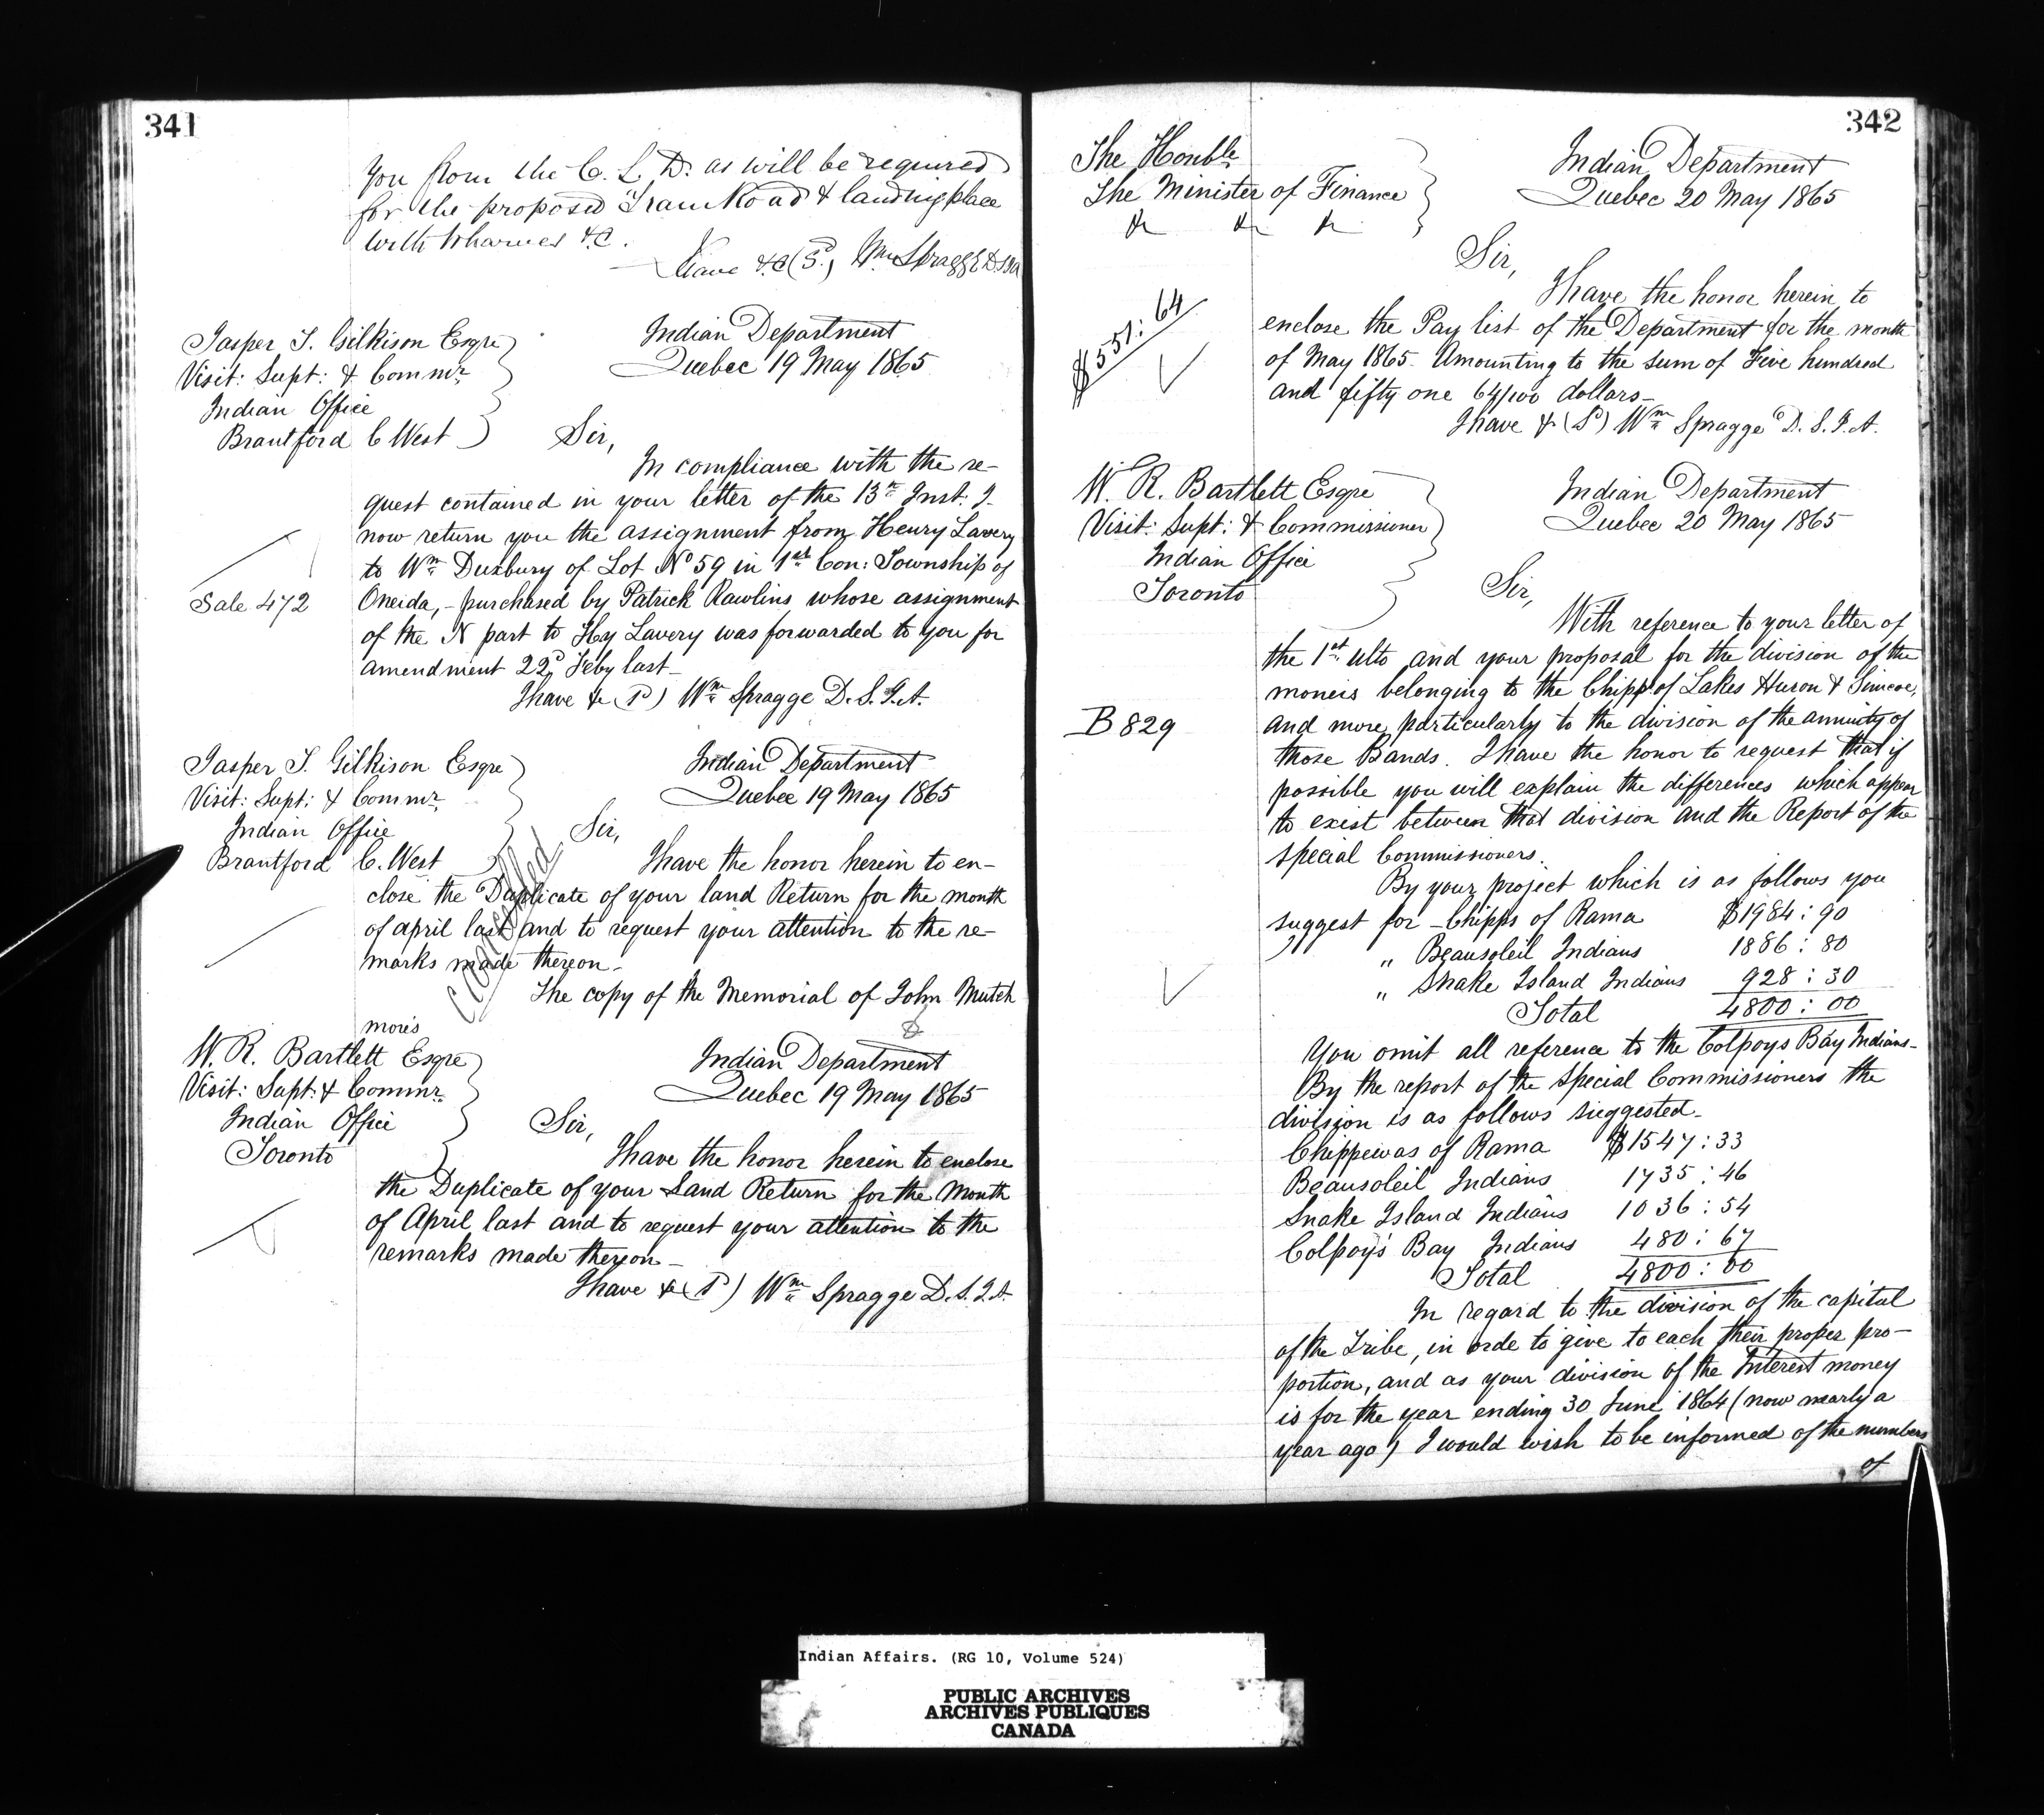 341
You from the C. L. D. as will be required
for the proposed Tram Road & landing place
with wharves &c.
Have &c (Sd) Wm Spragge D.S.I.A
Jasper T. Gilkison Esqre
Visit: Supt: & Commr
Indian Office
Brantford C West
Indian Department
Quebec 19 May 1865
Sir,
In compliance with the re-
quest contained in your letter of the 13th Inst. I
now return you the assignment from Henry Lavery
to Wm Duxbury of Lot No 59 in 1st Con: Township of
Sale 472
Oneida, - purchased by Patrick Rawlins whose assignment
of the N part to Hy Lavery was forwarded to you for
amendment 22d Feby last -
I have &c (Sd) Wm Spragge D. S. I. A.
Jasper T. Gilkison Esqre
Visit: Supt: & Commr
Indian Office
Brantford C. West
Indian Department
Quebec 19 May 1865
Sir,
Cancelled
I have the honor herein to en-
close the Duplicate of your land Return for the month
of april last and to request your attention to the re-
marks made thereon -
The copy of the Memorial of John Mutch
more's
&
W. R. Bartlett Esqre
Visit: Supt: & Commr.
Indian Office
Toronto
Indian Department
Quebec 19 May 1865
Sir,
I have the honor herein to enclose
the Duplicate of your Land Return for the Month
of April last and to request your attention to the
remarks made thereon -
I have &c (Sd) Wm Spragge D. S. I. A.
342
The Honble
The Minister of Finance
&c &c &c
Indian Department
Quebec 20 May 1865
Sir,
$551: 64
I have the honor herein to
enclose the Pay list of the Department for the month
of May 1865. Amounting to the sum of Five hundred
and fifty one 64/100 dollars -
I have & (Sd) Wm Spragge D. S. I. A.
W. R. Bartlett Esqre
Visit: Supt: & Commissioner
Indian Office
Toronto
Indian Department
Quebec 20 May 1865
Sir,
With reference to your letter of
the 1st ulto and your proposal for the division of the
moneis belonging to the Chipps of Lakes Huron & Simcoe,
B 829
and more particularly to the division of the annuity of
those Bands. I have the honor to request that if
possible you will explain the differences which appear
to exist between that division and the Report of the
special Commissioners.
By your project which is as follows you
suggest for - Chipps of Rama $1984: 90
" Beausoleil Indians 1886: 80
" Snake Island Indians 928: 30
Total 4800: 00
You omit all reference to the Colpoys Bay Indians -
By the report of the special Commissioners the
division is as follows suggested -
Chippewas of Rama $1547: 33
Beausoleil Indians 1735: 46
Snake Island Indians 1036: 54
Colpoy's Bay Indians 480: 67
Total 4800: 00
In regard to the division of the capital
of the Tribe, in orde to give to each their proper pro-
portion, and as your division of the Interest money
is for the year ending 30 June 1864 (now nearly a
year ago) I would wish to be informed of the numbers
of
Indian Affairs. (RG 10, Volume 524)
PUBLIC ARCHIVES
ARCHIVES PUBLIQUES
CANADA